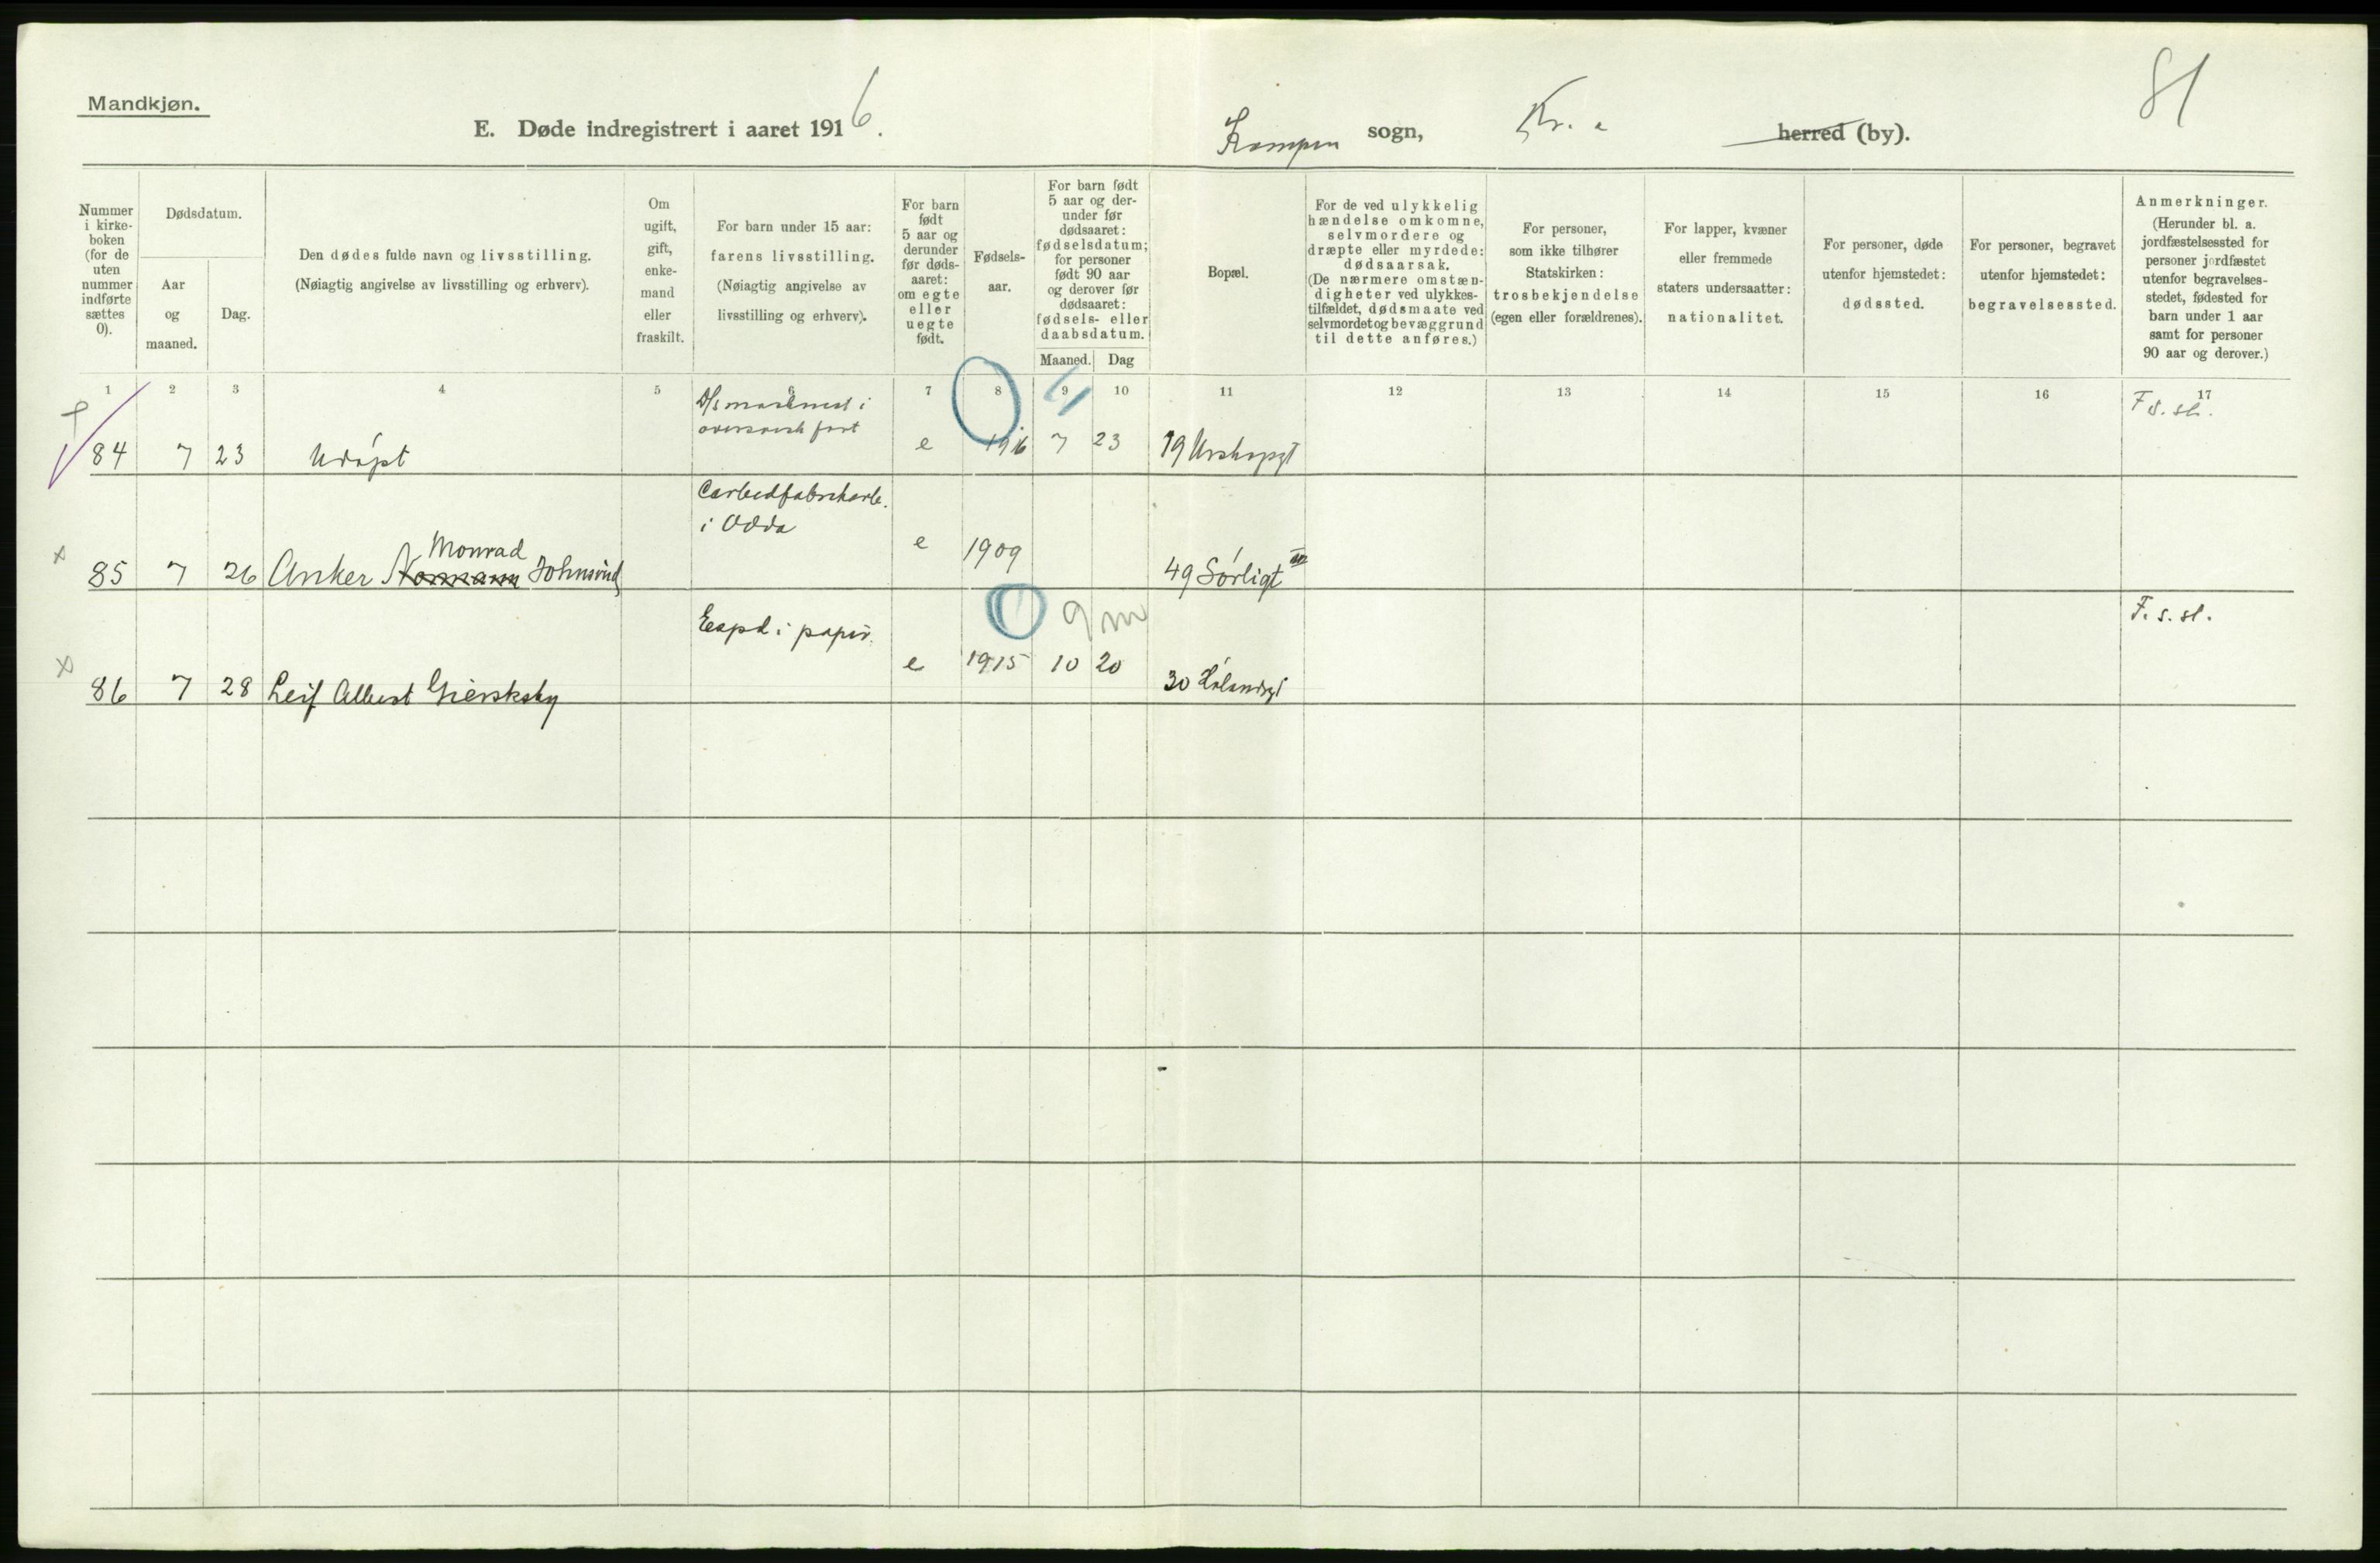 81
Mandkjøn.
E. Døde indregistrert i aaret 1916.
Kampen sogn, Kr.a herred (by).
Nummer i kirke-boken (for de uten nummer indførte sættes 0).
Dødsdatum.
Aar og maaned.
Dag.
Den dødes fulde navn og livsstilling.
(Nøiagtig angivelse av livsstilling og erhverv).
Om ugift, gift, enke-mand eller fraskilt.
For barn under 15 aar: farens livsstilling.
(Nøiagtig angivelse av livsstilling og erhverv).
For barn født 5 aar og derunder før døds-aaret: om egte eller uegte født.
Fødsels-aar.
For barn født 5 aar og der-under før dødsaaret: fødselsdatum; for personer født 90 aar og derover før dødsaaret: fødsels- eller daabsdatum.
Maaned. Dag
Bopæl.
For de ved ulykkelig hændelse omkomne, selvmordere og dræpte eller myrdede: dødsaarsak.
(De nærmere omstæn-digheter ved ulykkes-tilfældet, dødsmaate ved selvmordet og bevæggrund til dette anføres.)
For personer, som ikke tilhører Statskirken: trosbekjendelse (egen eller forældrenes).
For lapper, kvæner eller fremmede staters undersaatter: nationalitet.
For personer, døde utenfor hjemstedet: dødssted.
For personer, begravet utenfor hjemstedet: begravelsessted.
Anmerkninger.
(Herunder bl. a. jordfæstelsessted for personer jordfæstet utenfor begravelses-stedet, fødested for barn under 1 aar samt for personer 90 aar og derover.)
1 2 3 4 5 6 7 8 9 10 11 12 13 14 15 16 17
F.s.sl.
84 7 23 Udøpt e 1916 7 23 19
Carbidfabrikarb.
i Odda
Monrad
85 7 26 Anker Normann e 1909 49 Sørligt
0 9 m
Eksped i papir. F.s.sl.
86 7 28 Leif Albert e 1915 10 20 30 Hølandsgt